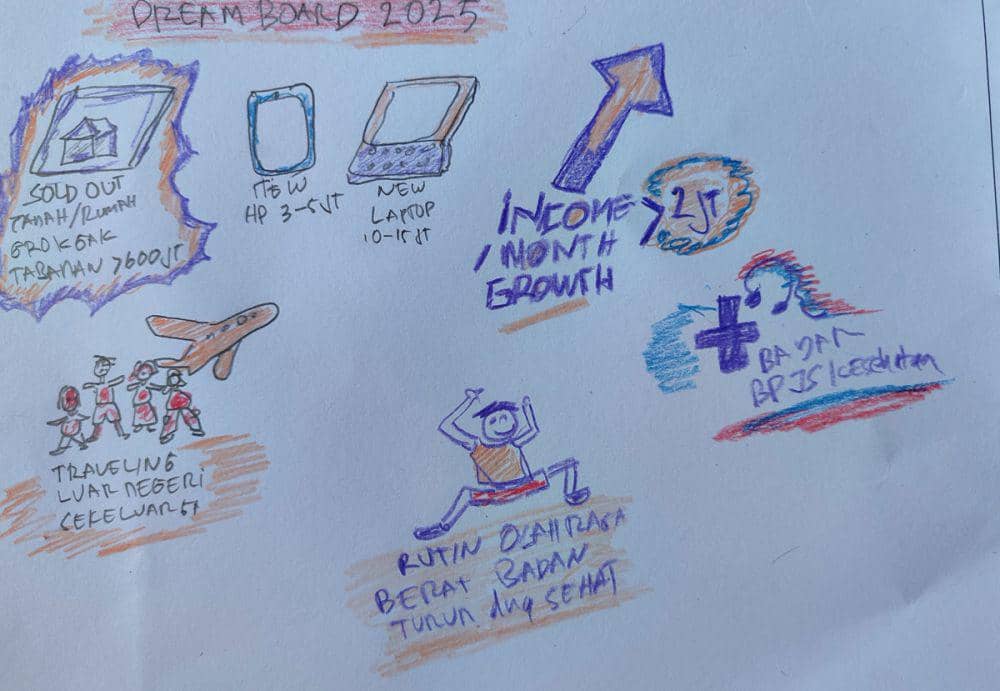 DREAM BOARD 2025
SOLD OUT
TANAH/RUMAH
GROKGAK
TABANAN >600 JT
NEW
HP 3-5 JT
NEW
LAPTOP
10-15 JT
INCOME > 2 JT
/ MONTH
GROWTH
BAYAR
BPJS Kesehatan
TRAVELING
LUAR NEGERI
SEKELUARGA
RUTIN OLAHRAGA
BERAT BADAN
TURUN dng SEHAT